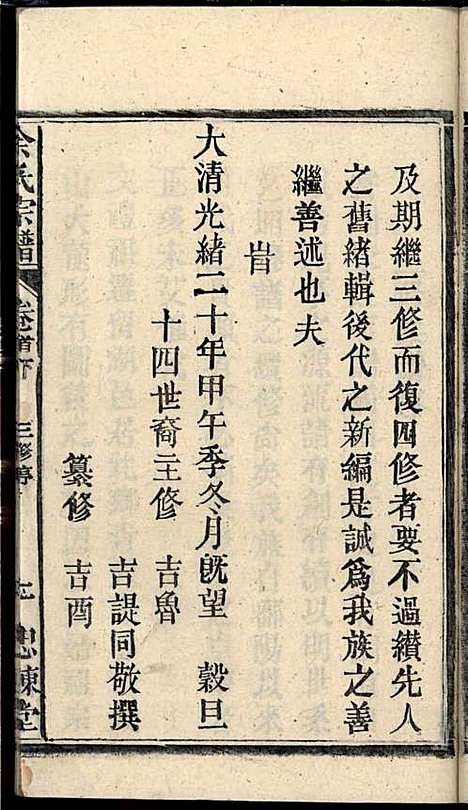 及期繼三修而復四修者要不過纉先人
之舊緒輯後代之新編是誠爲我族之善
繼善述也夫
旹
大清光緒二十年甲午季冬月旣望 穀旦
十四世裔主修 吉魯
吉諟同敬撰
纂修 吉酉
余氏宗譜 卷首下 三修序 忠諫堂